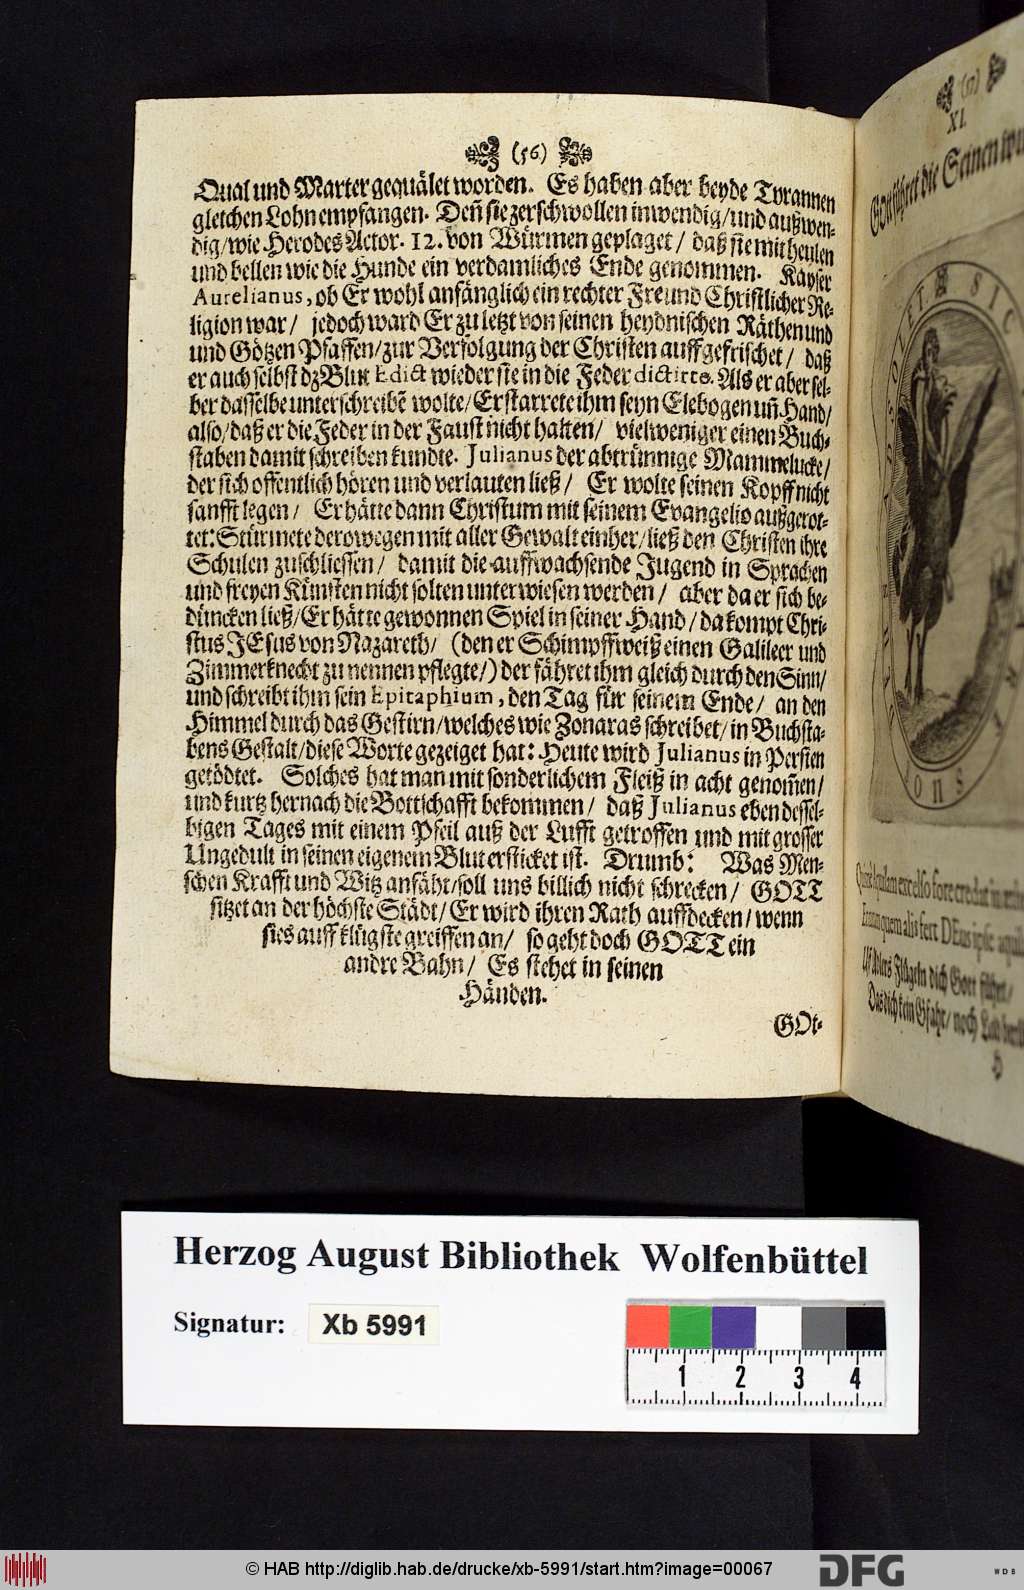 (56)
Qual und Marter gequälet worden. Es haben aber beyde Tyrannen
gleichen Lohn empfangen. Deñ sie zerschwollen inwendig/ und außwen-
dig/ wie Herodes Actor. 12. von Würmen geplaget/ daß sie mit heulen
und bellen wie die Hunde ein verdamliches Ende genommen. Kayser
Aurelianus, ob Er wohl anfänglich ein rechter Freund Christlicher Re-
ligion war/ jedoch ward Er zu letzt von seinen heydnischen Räthen und
und Götzen Pfaffen/ zur Verfolgung der Christen auffgefrischet/ daß
er auch selbst dz Blut Edict wieder sie in die Feder dictirte. Als er aber sel-
ber dasselbe unterschreibẽ wolte/ Erstarrete ihm seyn Elebogen uñ Hand/
also/ daß er die Feder in der Faust nicht halten/ vielweniger einen Buch-
staben damit schreiben kundte. Julianus der abtrünnige Mammelucke/
der sich offentlich hören und verlauten ließ/ Er wolte seinen Kopff nicht
sanfft legen/ Er hätte dann Christum mit seinem Evangelio außgerot-
tet: Stürmete derowegen mit aller Gewalt einher/ ließ den Christen ihre
Schulen zuschliessen/ damit die auffwachsende Jugend in Sprachen
und freyen Künsten nicht solten unterwiesen werden/ aber da er sich be-
düncken ließ/ Er hätte gewonnen Spiel in seiner Hand/ da kompt Chri-
stus JEsus von Nazareth/ (den er Schimpffweiß einen Galileer und
Zimmerknecht zu nennen pflegte/) der fähret ihm gleich durch den Sinn/
und schreibt ihm sein Epitaphium, den Tag für seinem Ende/ an den
Himmel durch das Gestirn/ welches wie Zonaras schreibet/ in Buchsta-
bens Gestalt/ diese Worte gezeiget hat: Heute wird Julianus in Persien
getödtet. Solches hat man mit sonderlichem Fleiß in acht genom̃en/
und kurtz hernach die Bottschafft bekommen/ daß Julianus eben dessel-
bigen Tages mit einem Pfeil auß der Lufft getroffen und mit grosser
Ungedult in seinen eigenem Blut ersticket ist. Drumb: Was Men-
schen Krafft und Witz anfäht/ soll uns billich nicht schrecken/ GOTT
sitzet an der höchste Städt/ Er wird ihren Rath auffdecken/ wenn
sies auff klügste greiffen an/ so geht doch GOTT ein
andre Bahn/ Es stehet in seinen
Händen.
GOt-
(57)
XI.
GOtt führet die Seinen
SIC
Quis Aquilam excelso fore credat in
Enim quem alis fert DEus ipse
Uff Adlers Flügeln dich Gott führt/
Das dich kein Gfahr/ noch Leid
H
Herzog August Bibliothek Wolfenbüttel
Signatur: Xb 5991
1 2 3 4
© HAB http://diglib.hab.de/drucke/xb-5991/start.htm?image=00067
DFG
WDB